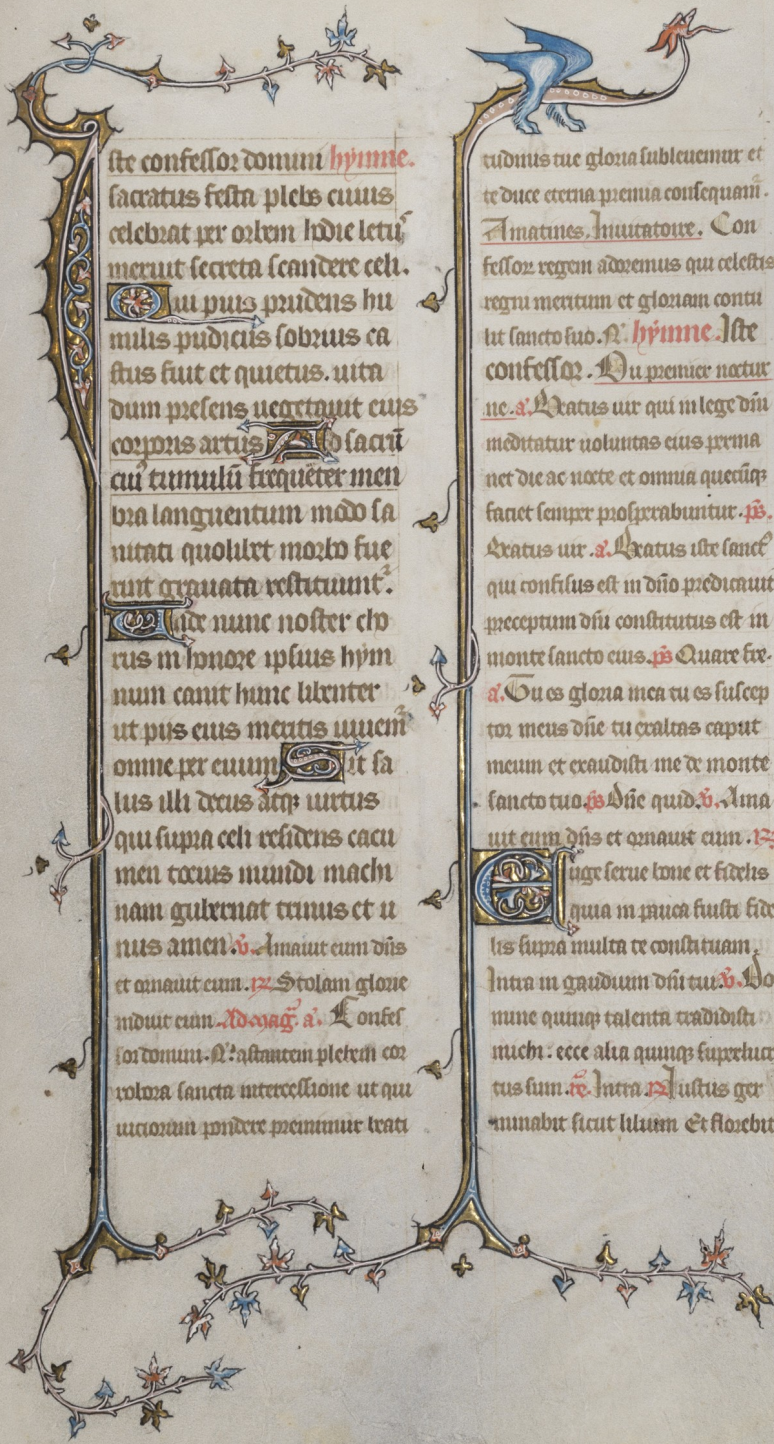 Iste confessor domini hymne.
sacratus festa plebs cuius
celebrat per orbem hodie letus
meruit secreta scandere celi.
Qui pius prudens hu
milis pudicus sobrius ca
stus fuit et quietus. uita
dum presens uegetauit eius
corporis artus Ad sacrū
cuiꝰ tumulū frequēter men
bra languentum modo sa
nitati quolibet morbo fue
rint grauata restituunt᷑.
Unde nunc noster cho
rus in honore ipsius hym
num canit hunc libenter
ut piis eius meritis iuuem᷑
omne per euum Sit sa
lus illi decus atqꝫ uirtus
qui supra celi residens cacu
men tocius mundi machi
nam gubernat trinus et u
nus amen. v̾. Amauit eum dn̄s
et ornauit eum. ꝶ Stolam glorie
induit eum. Ad mag̃. a᷑. Confes
sor domini. N᷑. astantem plebem cor
robora sancta intercessione ut qui
uiciorum pondere premimur beati
tudinis tue gloria subleuemur et
te duce eterna premia consequam᷑.
A matines. Inuitatoire. Con
fessor. regem adoremus qui celestis
regni meritum et gloriam contu
lit sancto suo. N᷑. hymne. Iste
confessor. Du premier noctur
ne. a᷑. Beatus uir qui in lege dn̄i
meditatur uoluntas eius perma
net die ac nocte et omnia quecūqꝫ
faciet semper prosperabuntur. ps̄.
Beatus uir. a᷑. Beatus iste sanctꝰ
qui confisus est in dn̄o predicauit
preceptum dn̄i constitutus est in
monte sancto eius. ps̄ Quare fre.
a᷑. Tu es gloria mea tu es suscep
tor meus dn̄e tu exaltas caput
meum et exaudisti me de monte
sancto tuo. ps̄ Dn̄e quid. v̾. Ama
uit eum dn̄s et ornauit eum. ꝶ
Euge serue bone et fidelis
quia in pauca fuisti fide
lis supra multa te constituam.
Intra in gaudium dn̄i tui. v̾. Do
mine quinqꝫ talenta tradidisti
michi. ecce alia quinqꝫ superlucra
tus sum. re᷑. Intra ꝶ Iustus ger
minabit sicut lilium Et florebit